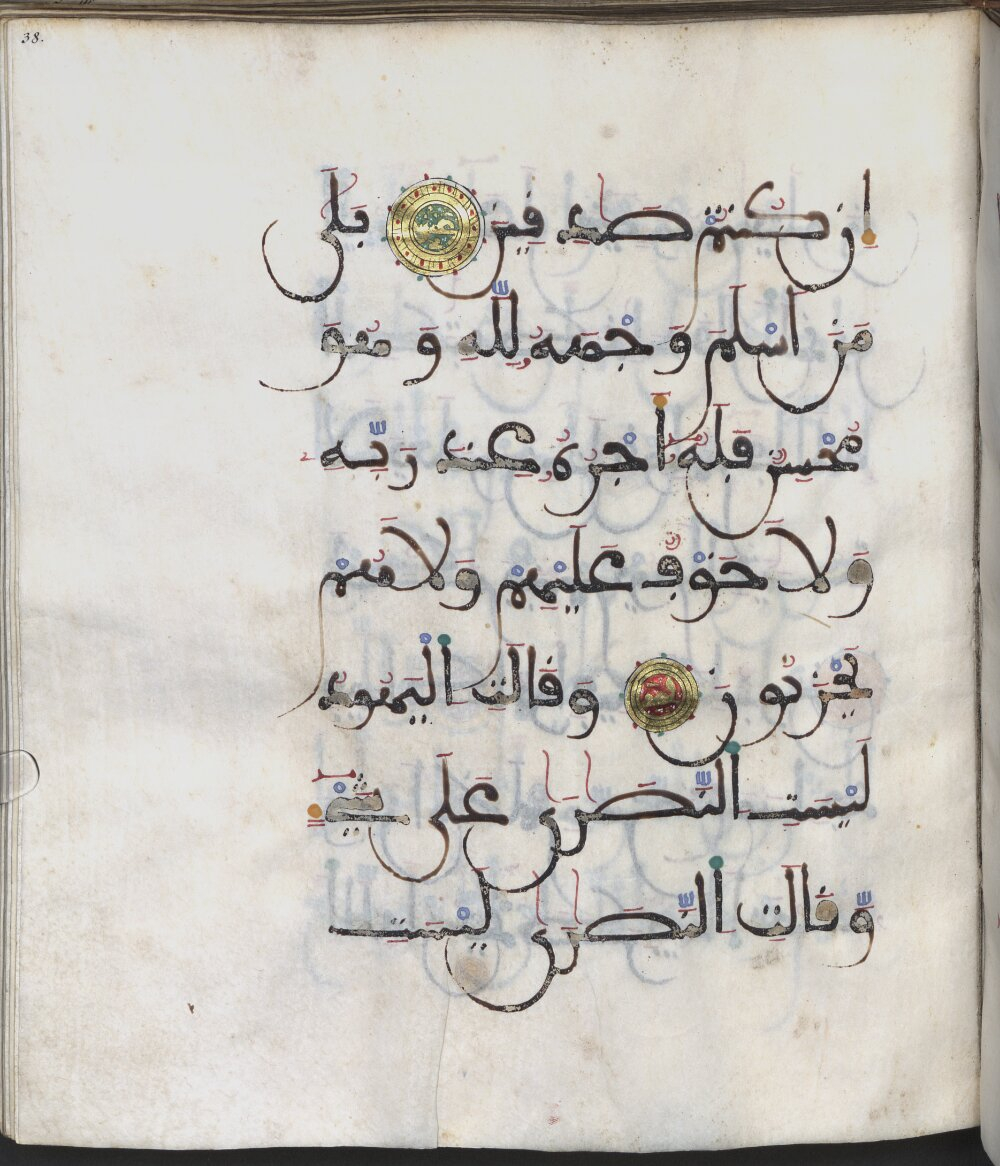 38.
إِن كُنتُمْ صَٰدِفِينَ بَلَىٰ
مَنَ اَسْلَمَ وَجْهَهُۥ لِلَّهِ وَهُوَ
مُحْسِنٌ فَلَهُۥٓ أَجْرُهُۥ عِندَ رَبِّهِۦ
وَلَا خَوْفٌ عَلَيْهِمْ وَلَا هُمْ
يَحْزَنُونَ وَقَالَتِ اِلْيَهُودُ
لَيْسَتِ اِلنَّصَٰرَىٰ عَلَىٰ شَيْءٍ
وَّقَالَتِ اِلنَّصَٰرَىٰ لَيْسَتِ